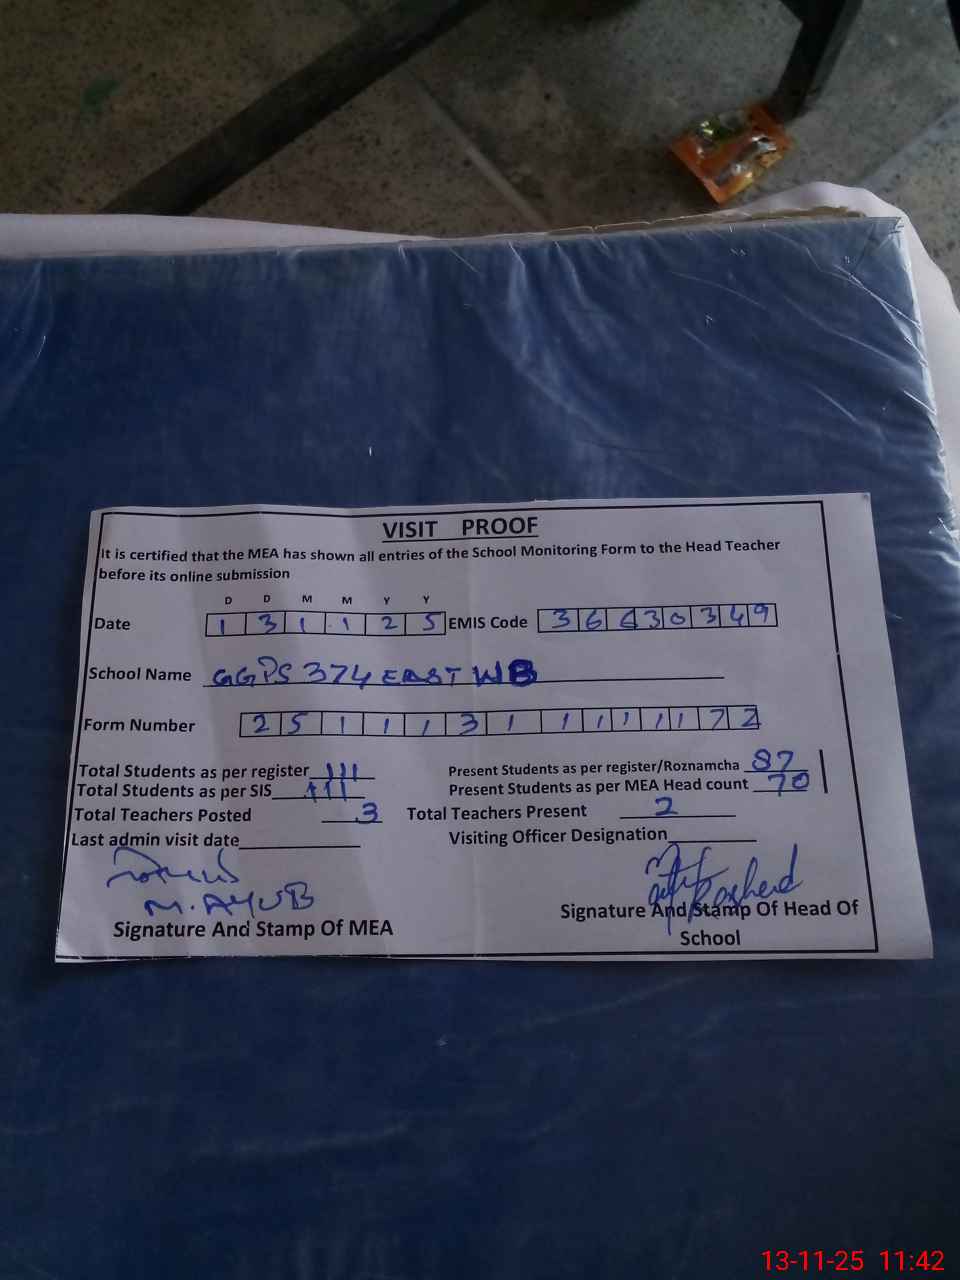 VISIT PROOF
It is certified that the MEA has shown all entries of the School Monitoring Form to the Head Teacher
before its online submission
D D M M Y Y
Date 1 3 1 1 2 5 EMIS Code 3 6 6 3 0 3 4 9
School Name GGPS 374 EAST WB
Form Number 2 5 1 1 1 3 1 1 1 1 1 1 7 2
Total Students as per register 111 Present Students as per register/Roznamcha 87
Total Students as per SIS 111 Present Students as per MEA Head count 70
Total Teachers Posted 3 Total Teachers Present 2
Last admin visit date Visiting Officer Designation
M. AYUB
Signature And Stamp Of MEA
Signature And Stamp Of Head Of
School
13-11-25 11:42